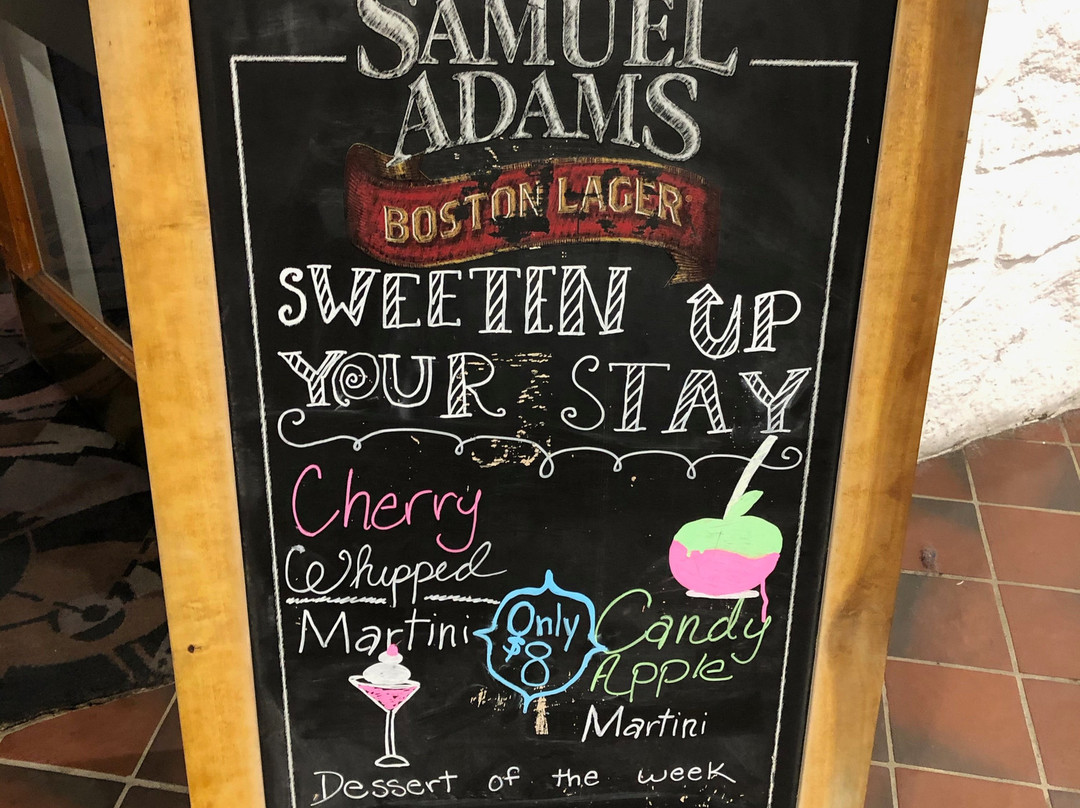 SAMUEL
ADAMS
BOSTON LAGER
SWEETEN UP
YOUR STAY
Cherry
Whipped
Martini
Only
$8
Candy
Apple
Martini
Dessert of the week